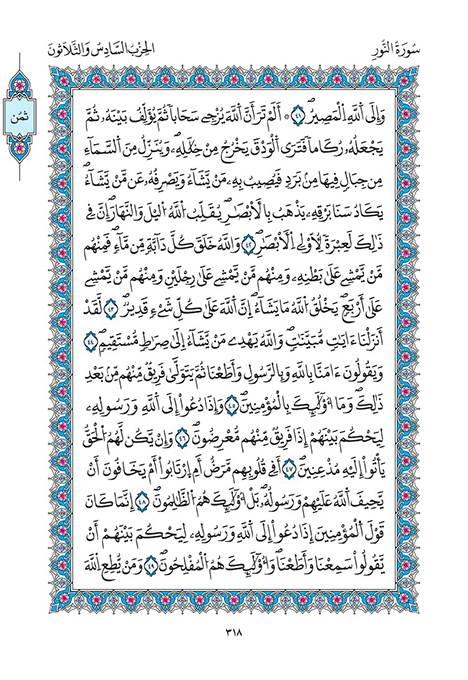 سُورَةُ النُّورِ
الحِزْبُ السَّادِسُ وَالثَّلَاثُونَ
ثُمُن
وَإِلَى اَ۬للَّهِ اِ۬لْمَصِيرُۖ ٤١ ۞ اَلَمْ تَرَ أَنَّ اَ۬للَّهَ يُزْجِے سَحَاباٗ ثُمَّ يُؤَلِّفُ بَيْنَهُۥ ثُمَّ
يَجْعَلُهُۥ رُكَاماٗ فَتَرَى اَ۬لْوَدْقَ يَخْرُجُ مِنْ خِلَٰلِهِۦۖ وَيُنَزِّلُ مِنَ اَ۬لسَّمَآءِ
مِن جِبَالٖ فِيهَا مِنۢ بَرَدٖ فَيُصِيبُ بِهِۦ مَنْ يَّشَآءُ وَيَصْرِفُهُۥ عَن مَّنْ يَّشَآءُۖ
يَكَادُ سَنَا بَرْقِهِۦ يَذْهَبُ بِالَابْصٰ۪رِۖ يُقَلِّبُ اُ۬للَّهُ اُ۬ليْلَ وَالنَّهَارَۖ إِنَّ فِے
ذَٰلِكَ لَعِبْرَةٗ لِّأُوْلِے اِ۬لَابْصٰ۪رِۖ ٤٢ وَاللَّهُ خَلَقَ كُلَّ دَآبَّةٖ مِّن مَّآءٖۖ فَمِنْهُم
مَّنْ يَّمْشِے عَلَىٰ بَطْنِهِۦ وَمِنْهُم مَّنْ يَّمْشِے عَلَىٰ رِجْلَيْنِ وَمِنْهُم مَّنْ يَّمْشِے
عَلَىٰٓ أَرْبَعٖۖ يَخْلُقُ اُ۬للَّهُ مَا يَشَآءُۖ اِنَّ اَ۬للَّهَ عَلَىٰ كُلِّ شَےْءٖ قَدِيرٞۖ ٤٣ لَّقَدَ
اَنزَلْنَآ ءَايَٰتٖ مُّبَيَّنَٰتٖۖ وَاللَّهُ يَهْدِے مَنْ يَّشَآءُ اِلَىٰ صِرَٰطٖ مُّسْتَقِيمٖۖ ٤٤
وَيَقُولُونَ ءَامَنَّا بِاللَّهِ وَبِالرَّسُولِ وَأَطَعْنَا ثُمَّ يَتَوَلَّىٰ فَرِيقٞ مِّنْهُم مِّنۢ بَعْدِ
ذَٰلِكَۖ وَمَآ أُوْلَٰٓئِكَ بِالْمُؤْمِنِينَۖ ٤٥ وَإِذَا دُعُوٓاْ إِلَى اَ۬للَّهِ وَرَسُولِهِۦ
لِيَحْكُمَ بَيْنَهُمُۥٓ إِذَا فَرِيقٞ مِّنْهُم مُّعْرِضُونَۖ ٤٦ وَإِنْ يَّكُن لَّهُمُ اُ۬لْحَقُّ
يَأْتُوٓاْ إِلَيْهِ مُذْعِنِينَۖ ٤٧ أَفِے قُلُوبِهِم مَّرَضٌ اَمِ اِ۪رْتَابُوٓاْ أَمْ يَخَافُونَ أَنْ
يَّحِيفَ اَ۬للَّهُ عَلَيْهِمْ وَرَسُولُهُۥۖ بَلُ اوْلَٰٓئِكَ هُمُ اُ۬لظَّٰلِمُونَۖ ٤٨ إِنَّمَا كَانَ
قَوْلَ اَ۬لْمُؤْمِنِينَ إِذَا دُعُوٓاْ إِلَى اَ۬للَّهِ وَرَسُولِهِۦ لِيَحْكُمَ بَيْنَهُمُۥٓ أَنْ
يَّقُولُواْ سَمِعْنَا وَأَطَعْنَاۖ وَأُوْلَٰٓئِكَ هُمُ اُ۬لْمُفْلِحُونَۖ ٤٩ وَمَنْ يُّطِعِ اِ۬للَّهَ
٣١٨